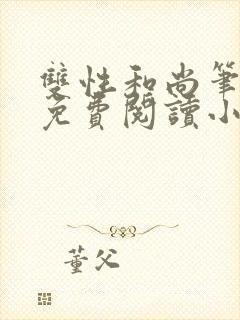 雙性和尚筆
免費閱讀小
董父